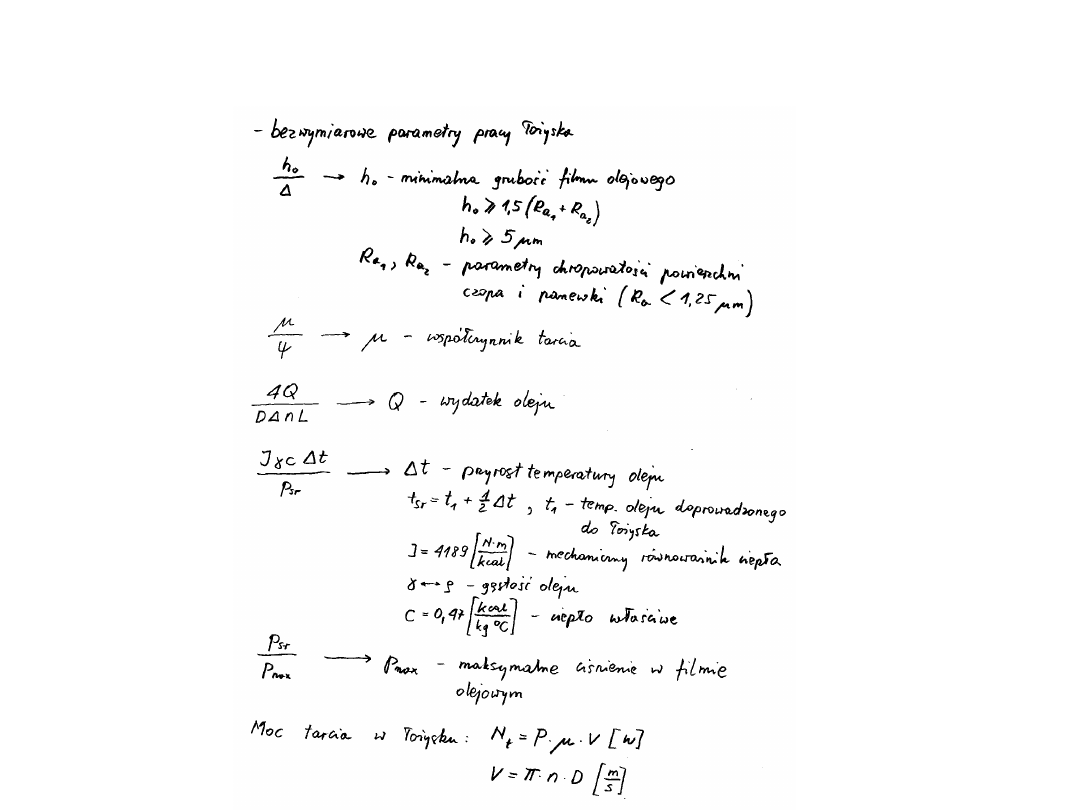 - bezwymiarowe parametry pracy łożyska
h₀/Δ → h₀ - minimalna grubość filmu olejowego
h₀ ⩾ 1,5 (Ra₁ + Ra₂)
h₀ ⩾ 5 μm
Ra₁, Ra₂ - parametry chropowatości powierzchni
czopa i panewki (Ra < 1,25 μm)
μ/ψ → μ - współczynnik tarcia
4Q/DΔnL → Q - wydatek oleju
JγcΔt/Pśr → Δt - przyrost temperatury oleju
tśr = t₁ + 1/2 Δt , t₁ - temp. oleju doprowadzonego
do łożyska
J = 4189 [N·m/kcal] - mechaniczny równoważnik ciepła
γ ↔ ρ - gęstość oleju
C = 0,47 [kcal/kg °C] - ciepło właściwe
Pśr/Pmax → Pmax - maksymalne ciśnienie w filmie
olejowym
Moc tarcia w łożysku: Nt = P·μ·V [W]
V = π·n·D [m/s]